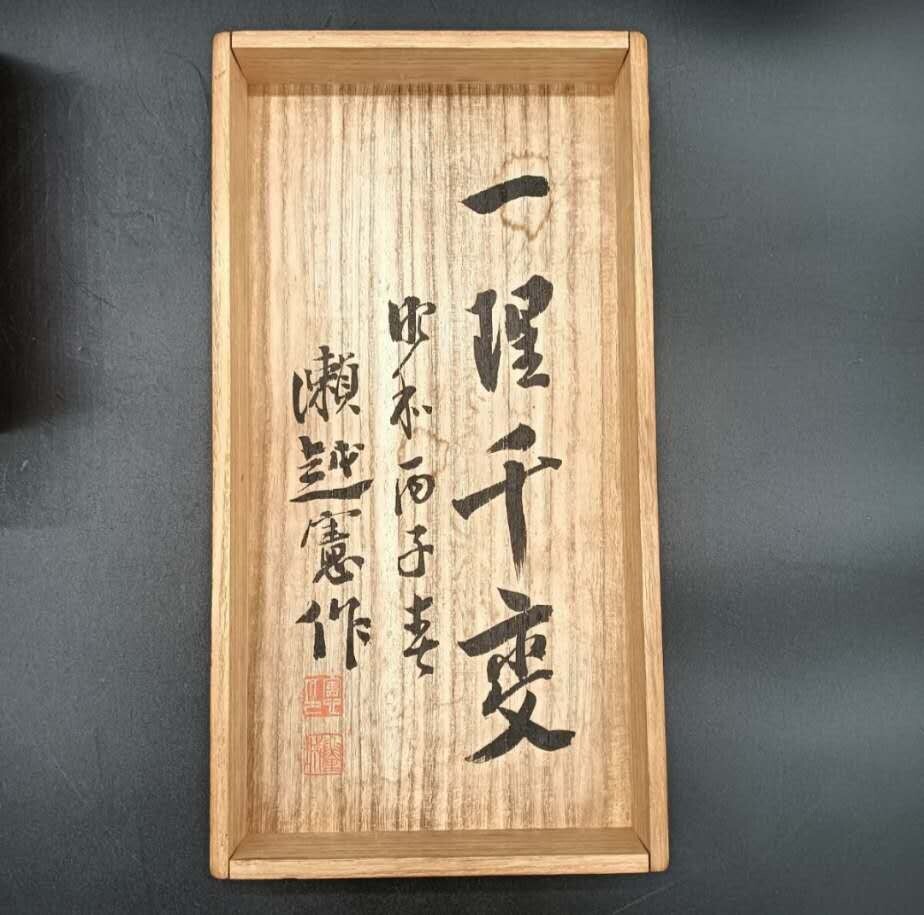 一理千変
昭和丙子春
瀬越憲作